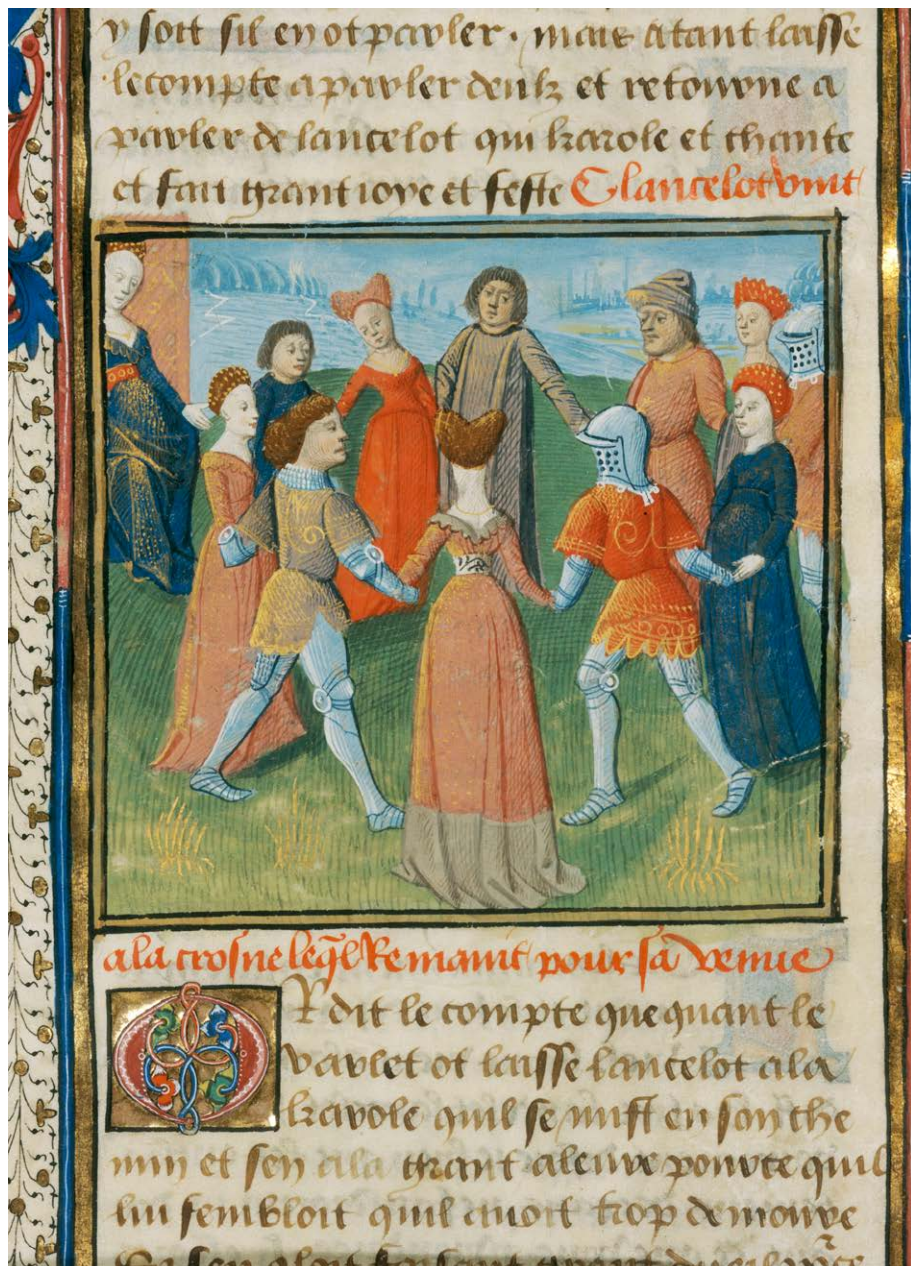 y soit sil en ot parler. mais atant laisse
le compte a parler deulz et retourne a
parler de lancelot qui karole et chante
et fait grant ioye et feste Clancelot vint
a la
remaint pour sa venue
Or dit le compte que quant le
varlet ot laisse lancelot a la
karole quil se mist en son che
min et sen ala grant aleure pource quil
lui sembloit quil auoit trop demoure